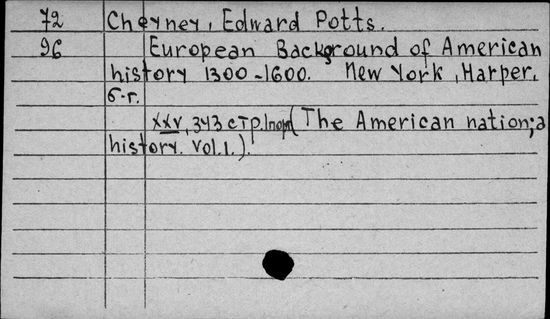 72 Cheyney, Edward Potts.
96 European Background of American
history 1300-1600. New York, Harper,
б-г.
xxv, 343 стр. 1 порт (The American nation; a
history. Vol. 1.).